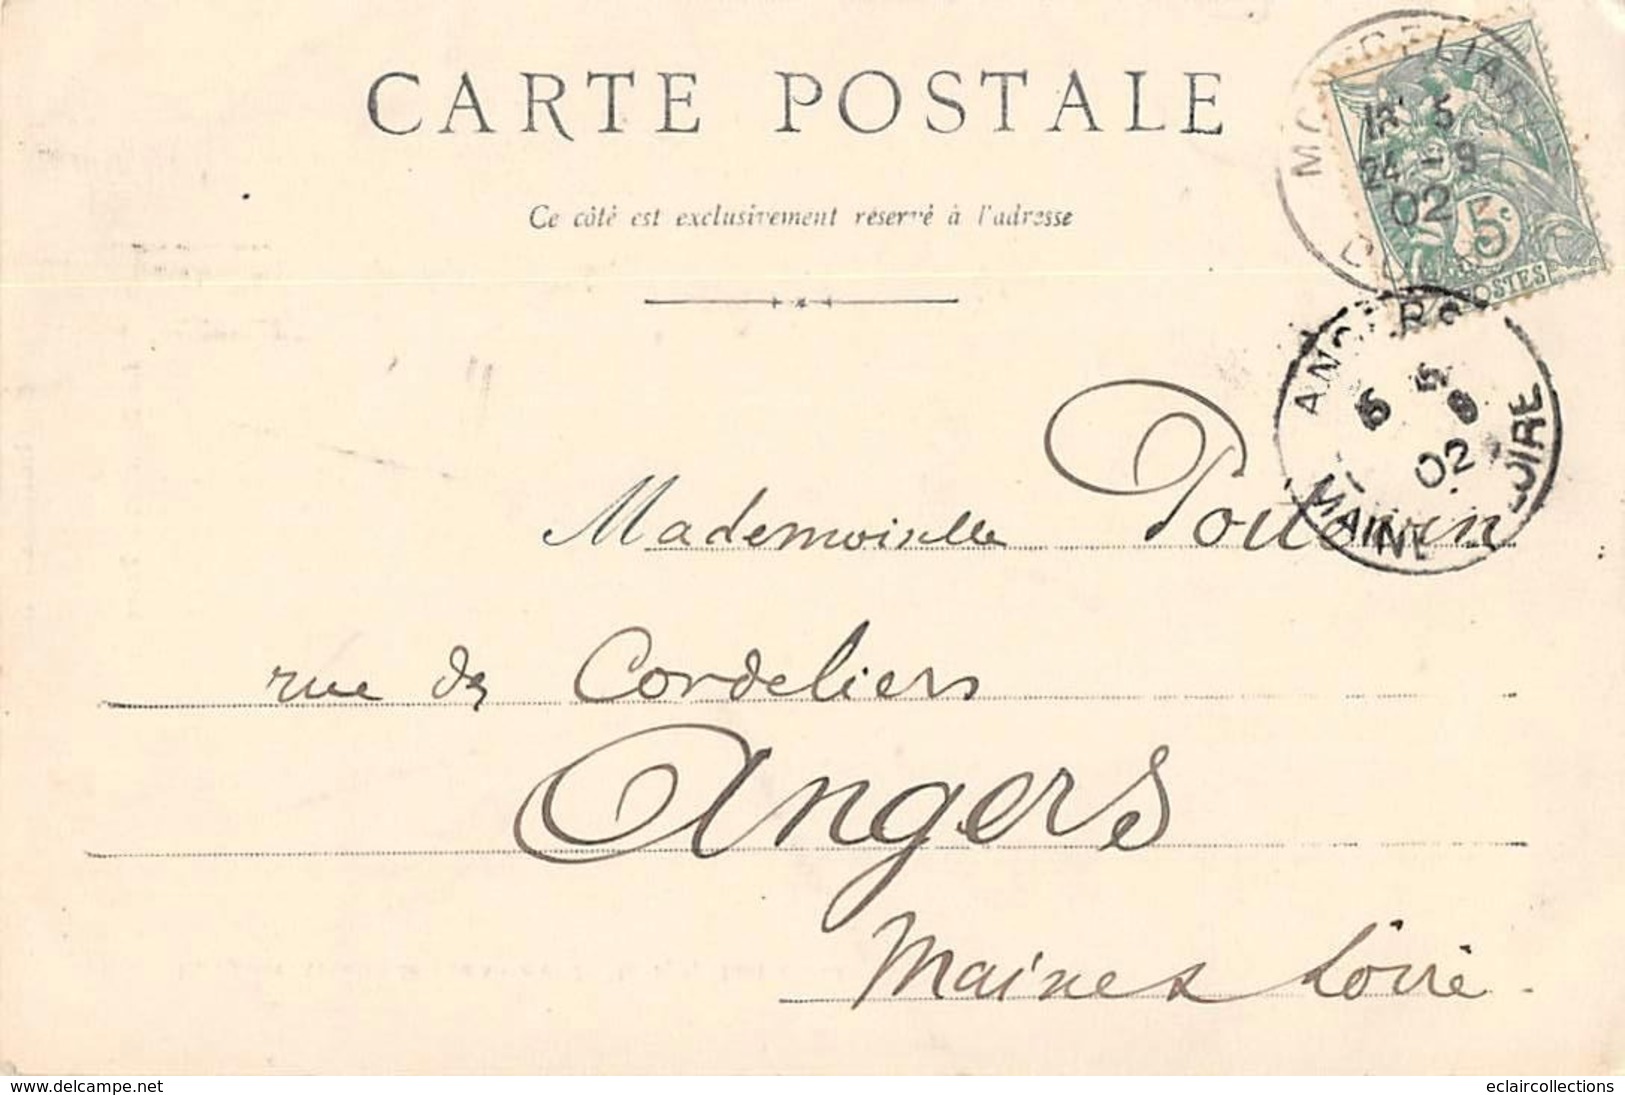 CARTE POSTALE
Ce côté est exclusivement réservé à l'adresse
18 5
24 - 9
02
5c
POSTES
ANGERS
02
MAINE LOIRE
Mademoiselle
rue des Cordeliers
Angers
Maine & Loire
www.delcampe.net
eclaircollections